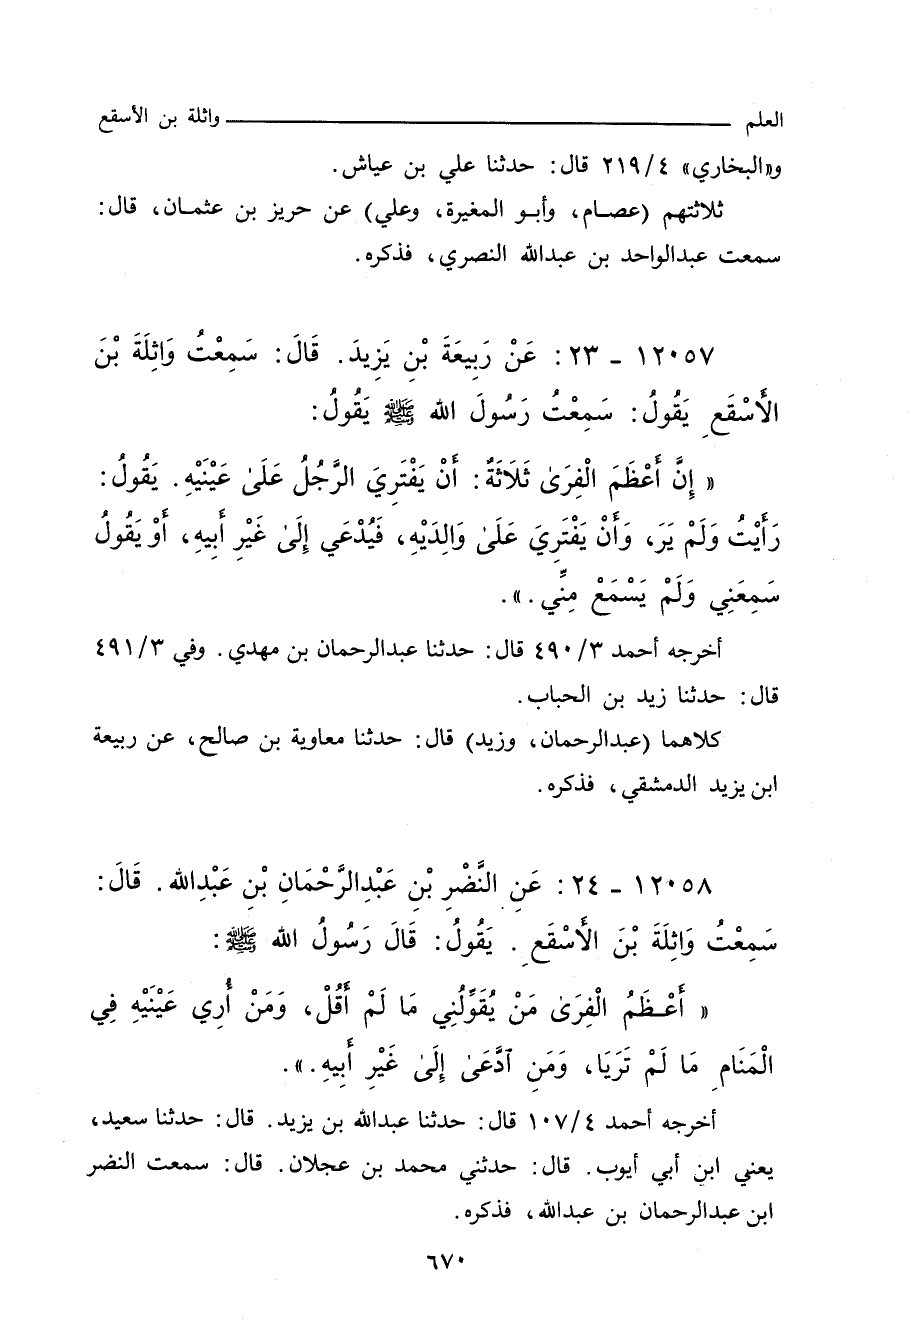 العلم ـــــــ واثلة بن الأسقع
و«البخاري» ٢١٩/٤ قال: حدثنا علي بن عياش.
ثلاثتهم (عصام، وأبو المغيرة، وعلي) عن حريز بن عثمان، قال:
سمعت عبدالواحد بن عبدالله النصري، فذكره.
١٢٠٥٧ - ٢٣: عَنْ رَبِيعَةَ بْنِ يَزِيدَ. قَالَ: سَمِعْتُ وَاثِلَةَ بْنَ
الْأَسْقَعِ يَقُولُ: سَمِعْتُ رَسُولَ الله ﷺ يَقُولُ:
« إِنَّ أَعْظَمَ الْفِرَىٰ ثَلَاثَةٌ: أَنْ يَفْتَرِيَ الرَّجُلُ عَلَىٰ عَيْنَيْهِ. يَقُولُ:
رَأَيْتُ وَلَمْ يَرَ، وَأَنْ يَفْتَرِيَ عَلَىٰ وَالِدَيْهِ، فَيُدْعَي إِلَىٰ غَيْرِ أَبِيهِ، أَوْ يَقُولُ
سَمِعَنِي وَلَمْ يَسْمَعْ مِنِّي.».
أخرجه أحمد ٤٩٠/٣ قال: حدثنا عبدالرحمان بن مهدي. وفي ٤٩١/٣
قال: حدثنا زيد بن الحباب.
كلاهما (عبدالرحمان، وزيد) قال: حدثنا معاوية بن صالح، عن ربيعة
ابن يزيد الدمشقي، فذكره.
١٢٠٥٨ - ٢٤: عَنِ النَّضْرِ بْنِ عَبْدِالرَّحْمَانِ بْنِ عَبْدِالله. قَالَ:
سَمِعْتُ وَاثِلَةَ بْنَ الْأَسْقَعِ. يَقُولُ: قَالَ رَسُولُ الله ﷺ:
« أَعْظَمُ الْفِرَىٰ مَنْ يُقَوِّلُنِي مَا لَمْ أَقُلْ، وَمَنْ أُرِي عَيْنَيْهِ فِي
الْمَنَامِ مَا لَمْ تَرَيَا، وَمَنِ ٱدَّعَىٰ إِلَىٰ غَيْرِ أَبِيهِ.».
أخرجه أحمد ١٠٧/٤ قال: حدثنا عبدالله بن يزيد. قال: حدثنا سعيد،
يعني ابن أبي أيوب. قال: حدثني محمد بن عجلان. قال: سمعت النضر
ابن عبدالرحمان بن عبدالله، فذكره.
٦٧٠